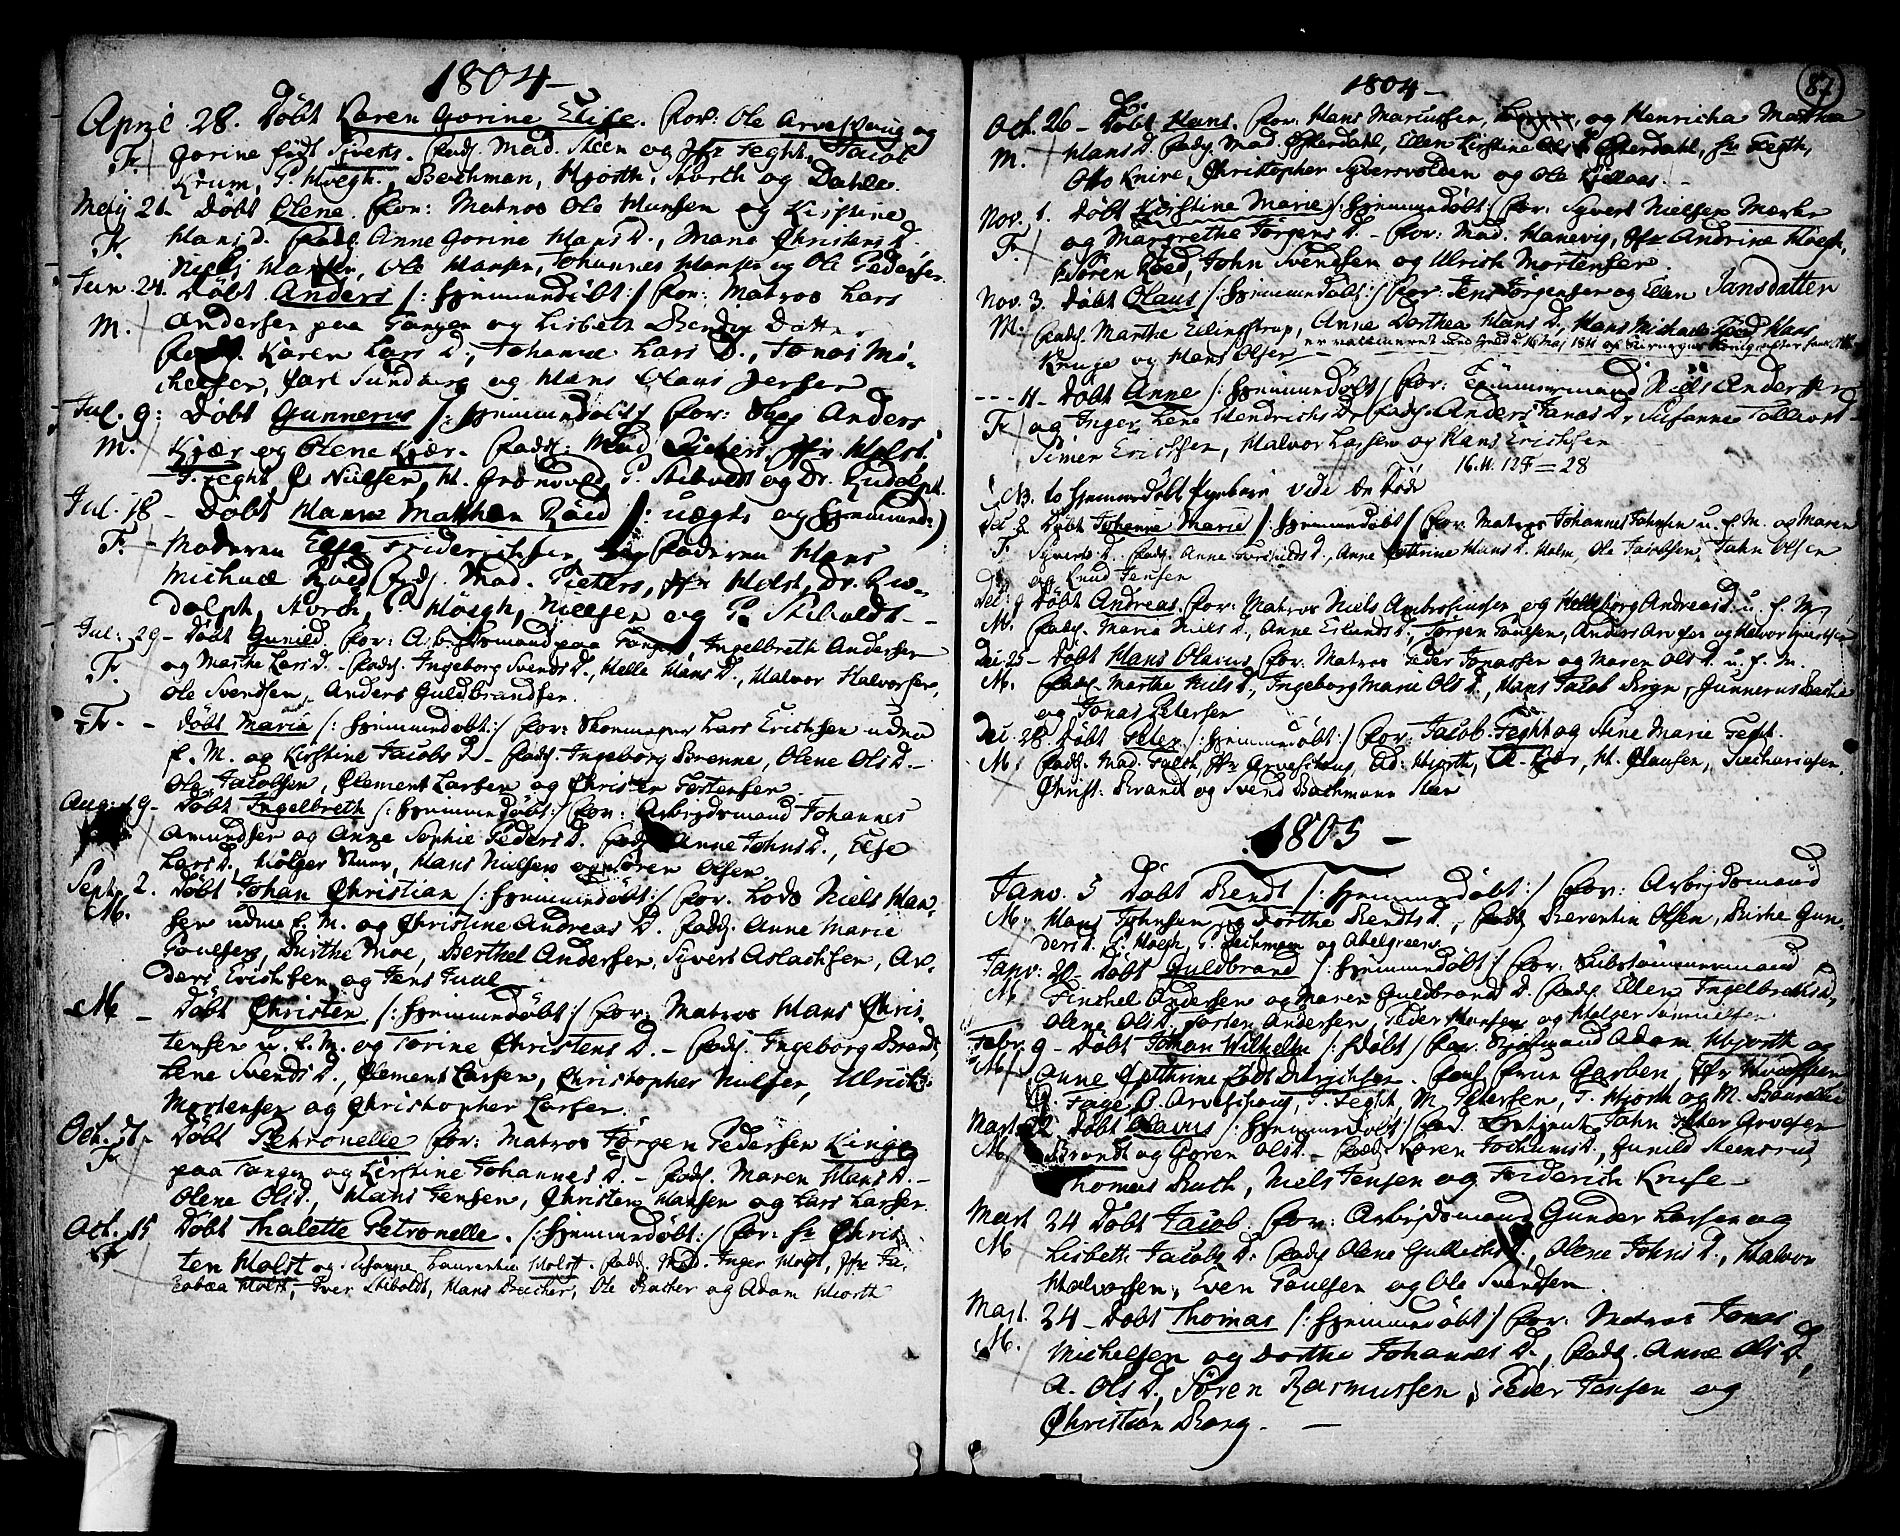 1804 –
April 28. Döbt Karen Gorine Elise. For: Ole Arveschoug og
Fr. Gorine födt Siverts. Fads. Mad. Steen og Jfr Feght, Jacob
Krum, P. Höegh, Bachman, Hjorth, Storch og Dahle.
Maij 21. Döbt Olene. For: Matros Ole Hansen og Kirstine
Fr. Hans D. Fads. Anne Gorine Hans D., Maria Christens D.
Niels Hansen, Ole Hansen, Johannes Hansen og Ole Pedersen
Jun. 24. Döbt Anders /: hjemmedöbt :/ For: Matros Lars
M. Andersen paa Tangen og Lisbeth Bendix Datter
Fads. Karen Lars D., Johanne Lars D., Jonas Mi-
chelsen, Carl Sundberg og Hans Olaus Jersen
Jul. 9: Döbt Gunnerus /: hjemmedöbt :/ For: Anders
M. Kjær og Olene Kjær. Fads: Mad Pieters, Jfr Holst.
P. Feght, C. Nielsen, H. Grönvold, P. Stiboldt og Dr. Rudolph.
Jul. 18 – Döbt Hanse Mathea Röed /: uægte og hjemmed: /
F. – Moderen Else Friderichsen Faderen Hans
Michael Röed Fads. Mad. Pieters, Jfr Holst, Dr. Ru-
dolph, Storch, P. Höegh, Nielsen og P. Stiboldt –
Jul: 29 – Döbt Gunild. For: Arbeidsmand paa Tangen, Ingelbreth Andersen
Fr. og Marthe Lars D. – Fads. Ingeborg Svends D., Helle Hans D., Halvor Halvorsen,
Ole Svendsen, Anders Guldbrandsen
Fr. – Döbt Maria /: hjemmedöbt :/ For: Lars Erichsen uden
f. M. og Kirstine Jacobs D – Fads. Ingeborg Brenne, Olene Ols D –
Ole Jacobsen, Clement Larsen og Christen Torstensen.
Aug: 19 – Döbt Ingelbreth /: hjemmedöbt :/ For: Arbejdsmand Johannes
Amundsen og Anne Sophie Peders D. Fads. Anne Johns D., Else
Lars D., Holger Stuer, Hans Nielsen og Sören Olsen.
Sept. 2. Döbt Johan Christian /: hjemmedöbt :/ For. Lods Niels Han-
M. sen uden f. M. og Christine Andreas D. Fads. Anne Marie
Poulsen, Birthe Moe, Berthel Andersen, Sivert Aslachsen, An-
ders Erichsen og Jens Juul
M – Döbt Christen /: hjemmedöbt :/ For: Matros Hans Chris-
tensen u. f. M. og Torine Christens D. – Fads. Ingeborg Brandt,
Lene Svends D., Clement Larsen, Christopher Nielsen, Ulrich
Mortensen og Christopher Larsen.
Oct. 7. – Döbt Petronelle For: Matros Jörgen Pedersen Kinge
Fr. paa Tangen og Kirstine Johannes D. – Fads. Maren Hans D. –
Olene Ols D., Hans Jensen, Christen Hansen og Lars Larsen
Oct. 15 Döbt Thalette Petronelle. /: hjemmedöbt :/ For: Hr Chris-
Fr ten Holst og Susanne Laurentia Holst. Fads. Mad. Inger Holst, Jfr Ja-
cobæa Holst, Iver Stiboldt, Hans Bucher, Ole Bucher og Adam Hiorth
87
1804 –
Oct. 26 – Döbt Hans. For: Hans Marcussen, og Henricha Mathea
M. Hans D. Fads. Mad. Österdahl, Ellen Kirstine Ols D Österdahl, Hr Fegth,
Otto Knive, Christopher Syversvolden og Ole Kjellaas. –
Nov. 1. Döbt Kirstine Marie /: hjemmedöbt :/ For: Sywert Nielsen Mærke
Fr. og Margrethe Jörgens D. – For: Mad: Hanevig, Jfr Andrine Höegh,
Sören Röed, John Svendsen og Ulrich Mortensen.
Nov. 3. Döbt Olaus /: hjemmedöbt :/ For: Jens Jörgensen og Ellen Jansdatter
M. Fads. Marthe Ellingstrup, Anne Dorthea Hans D., Hans Michael Röed, Hans
Kruge og Hans Olsen
---- 11 – Döbt Anne /: hjemmedöbt / For: Tömmermand Niels Andersen
Fr. og Inger Lene Hendrichs D., Fads. Anders Janas D, Susanne Tollevs D –
Simen Ericksen, Halvor Larsen og Hans Erichsen
16. M. 12 F = 28
NB. to hjemmedöbt Pigebörn vide de Döde
Dec. 2 Döbt Johanne Marie /: hjemmedöbt / For. Matros Johannes Johnsen u. f. M. og Maren
F. Syverts D. – Fads. Anne D., Anne Cathrine Hans D. Holm, Ole Jacobsen, John Olsen
og Knud Jensen
Dec. 9 Döbt Andreas. For: Matros Niels Ambrosiussen og Helleborg Andreas D. u. f. M,
M. Fads. Maria Niels D., Anne Erlands D., Jörgen Poulsen, Anders og Halvor
Dec. 25 – Döbt Hans Olavus For: Matros Peder Jonassen og Maren Ols D. u. f. M.
M. Fads. Marthe Niels D., Ingeborg Marie Ols D., Hans Jacob Berge, Gunnerus Bache
og Jonas Petersen
Dec. 28 Döbt Peter /: hjemmedöbt :/ For: Jacob Feght og Stine Marie Feght.
M. Fads. Mad. Falch, Jfr Arveschoug, Ad: Hiorth, A. Kjær, H. Clausen, Zachariesen,
Christ: Brandt og Svend Bachmann Steen
1805 –
Janv. 5 Döbt Bendt /: hjemmedöbt :/ For: Arbejdsmand
M. Hans Johnsen og Dorthe Bendts D., Fads. Berentin Olsen, Birthe Gun-
ders D. P. Höegh, P. Bechman og Abelgreen
Janv: 20 – Döbt Guldbrand /: hjemmedöbt :/ For:
M. Finchel Andersen og Maren Guldbrands D. Fads. Ellen Ingelbreths D,
Olene Ols D, Torsten Andersen, Peder Hansen og Holger Samuelsen
Febr. 9 – Döbt Johan Wilhelm /: Döbt / For. Adam Hjorth og
M. Anne Cathrine födt Derichsen. Fads. Frue Garben, Jfr
Arveschoug, P. Feght, M. Petersen, P. Hjorth og M.
Mart 12 Döbt Olavus /: hjemmedöbt :/ For. John Peter Arvesen
M. Brandt og Gören Ols D. – Fads. Karen Jochums D., Gunild Stensrud
Thomas Buch, Niels Jensen og Friderich Kruse –
Mart 24 Döbt Jacob. For: Arbejdsmand Gunder Larsen og
M Lisbeth Jacobs D. Fads. Olene Gullichs D., Olene Johns D., Halvor
Halvorsen, Even Poulsen og Ole Svendsen.
Mart. 24 – Döbt Thomas /: hjemmedöbt :/ For: Matros Jonas
M. Michelsen og Dorthe Johannes D., Fads. Anne Ols D,
A. Ols D, Sören Rasmussen, Peder Jensen og
Christian Bang. –